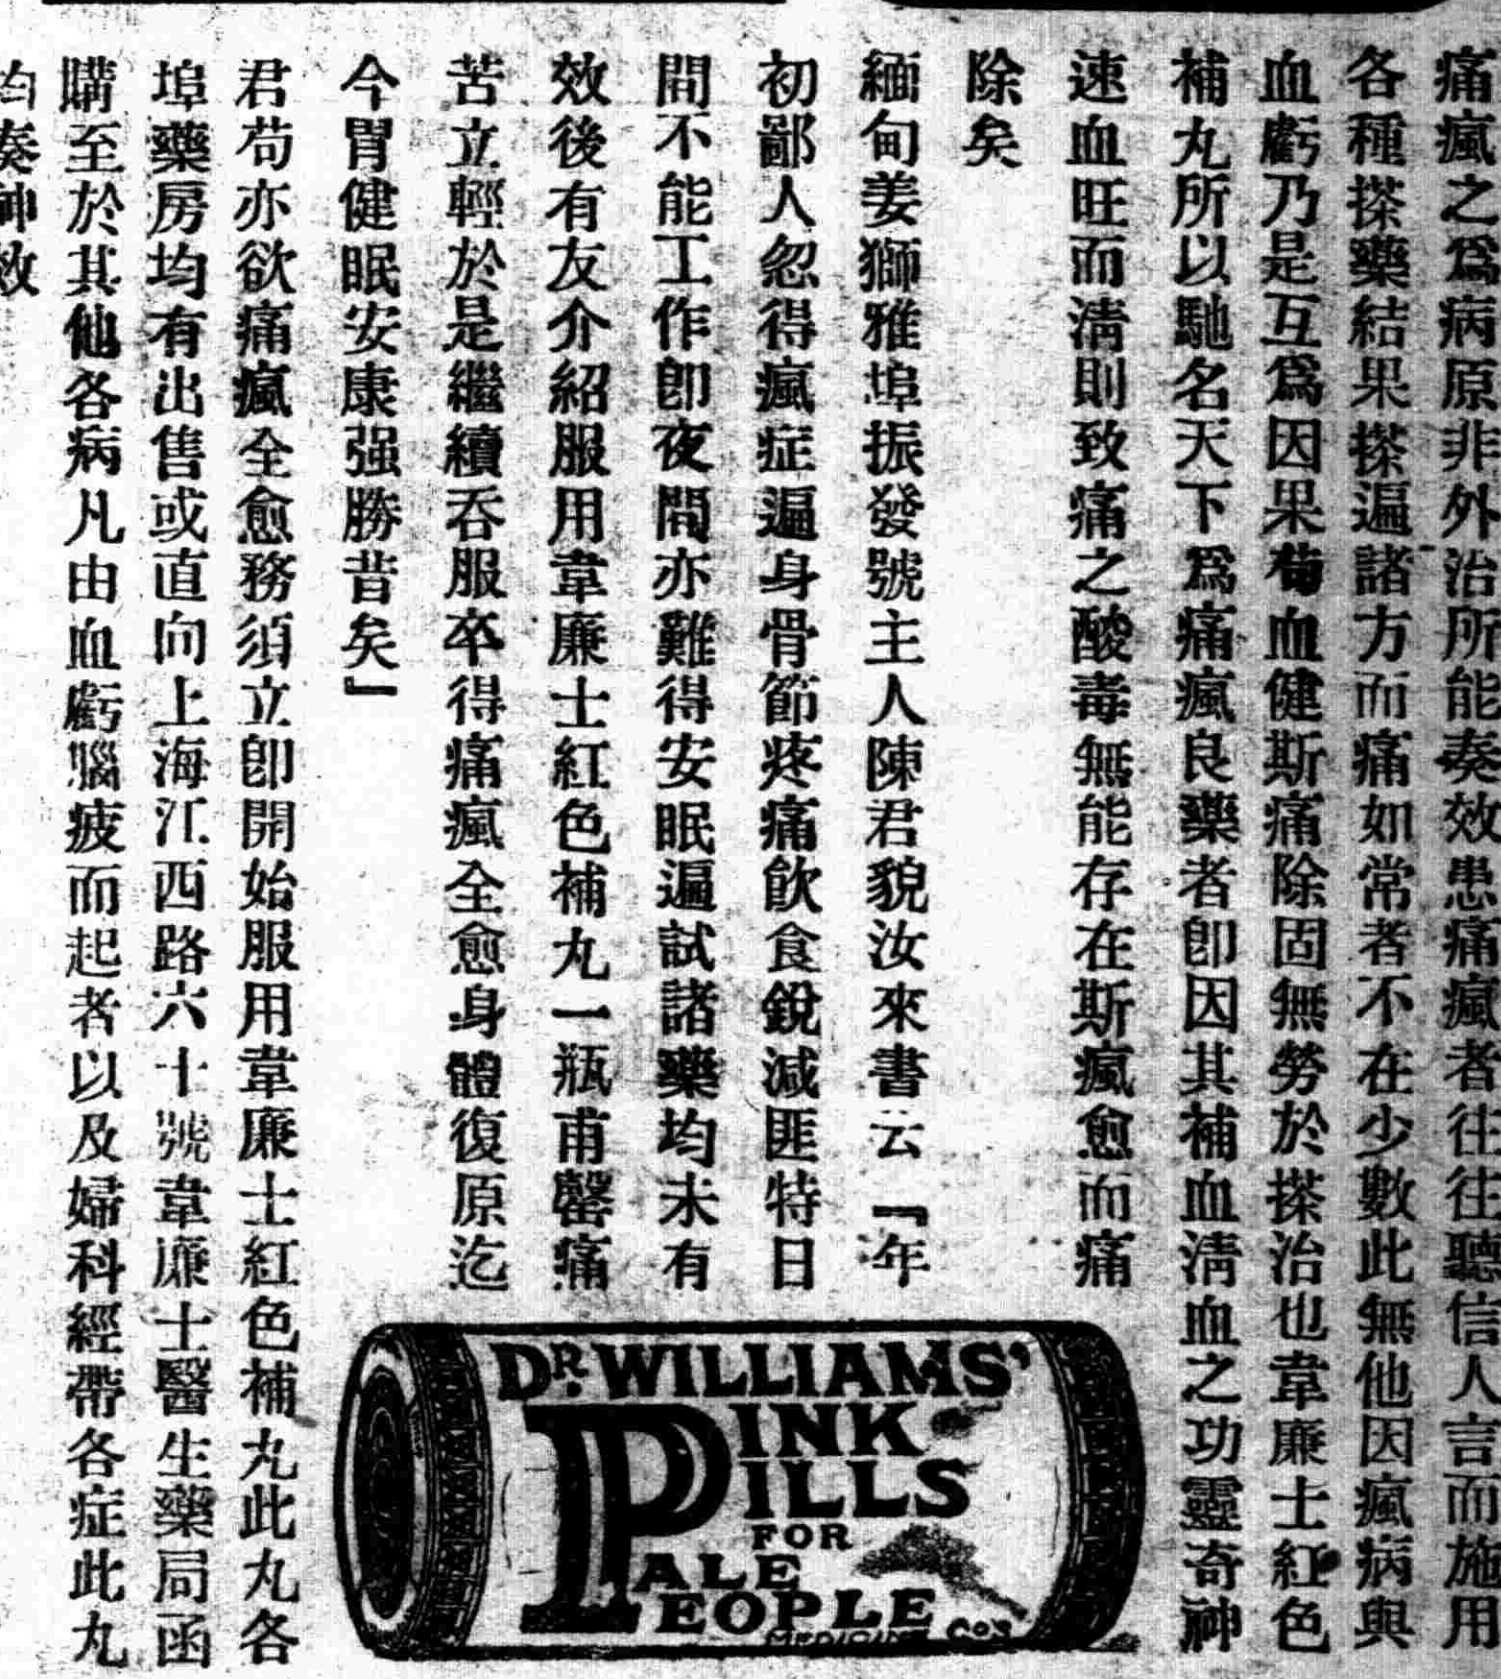 痛瘋之爲病原非外治所能奏效患痛瘋者往往聽信人言而施用
各種搽藥結果搽遍諸方而痛如常者不在少數此無他因瘋病與
血虧乃是互爲因果苟血健斯痛除固無勞於搽治也韋廉士紅色
補丸所以馳名天下爲痛瘋良藥者卽因其補血淸血之功靈奇神
速血旺而淸則致痛之酸毒無能存在斯瘋愈而痛
除矣
緬甸姜獅雅埠振發號主人陳君貌汝來書云『年
初鄙人忽得瘋症遍身骨節疼痛飲食銳減匪特日
間不能工作卽夜間亦難得安眠遍試諸藥均未有
效後有友介紹服用韋廉士紅色補丸一瓶甫罄痛
苦立輕於是繼續吞服卒得痛瘋全愈身體復原迄
今胃健眠安康强勝昔矣』
君苟亦欲痛瘋全愈務須立卽開始服用韋廉士紅色補丸此丸各
埠藥房均有出售或直向上海江西路六十號韋廉士醫生藥局函
購至於其他各病凡由血虧腦疲而起者以及婦科經帶各症此丸
均奏神效
DR. WILLIAMS'
PINK
PILLS
FOR
PALE
PEOPLE
MEDICINE Co's